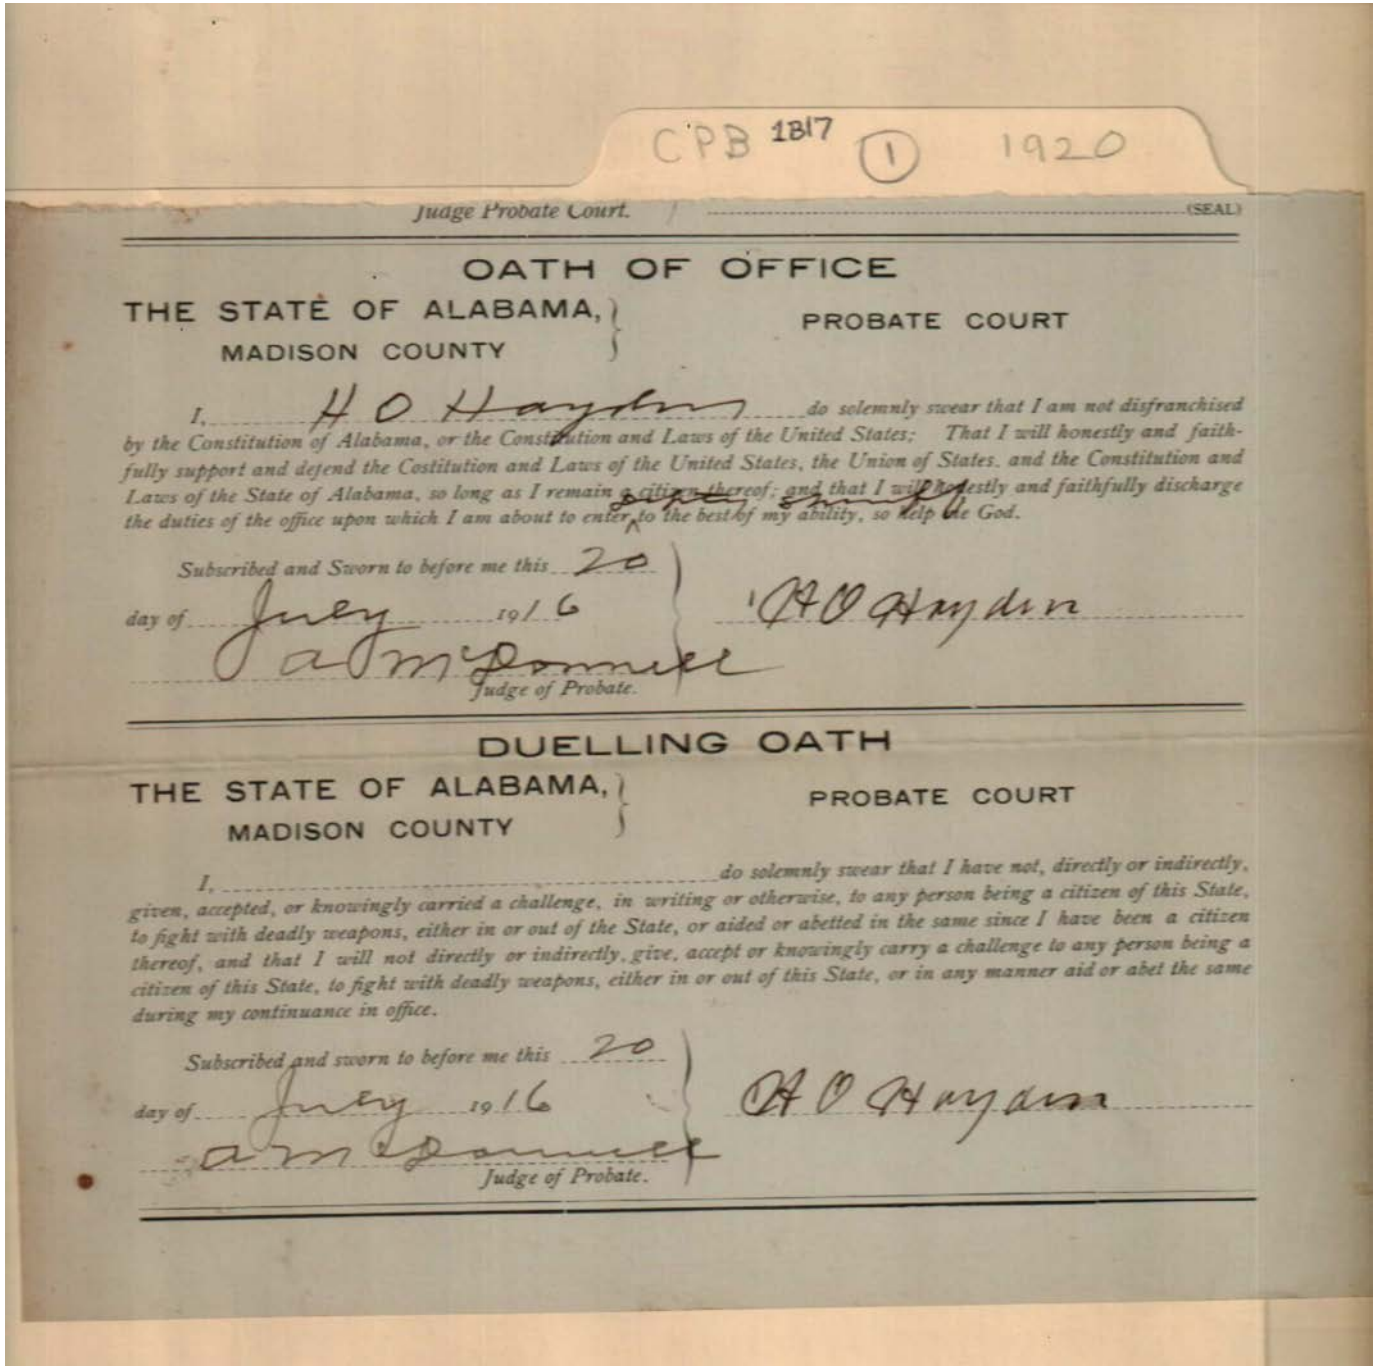 CPB 1817 1 1920
Judge Probate Court. (SEAL)
OATH OF OFFICE
THE STATE OF ALABAMA, } PROBATE COURT
MADISON COUNTY
I, H O Hayden do solemnly swear that I am not disfranchised
by the Constitution of Alabama, or the Constitution and Laws of the United States; That I will honestly and faith-
fully support and defend the Costitution and Laws of the United States, the Union of States, and the Constitution and
Laws of the State of Alabama, so long as I remain a citizen thereof; and that I will honestly and faithfully discharge
deputy sheriff
the duties of the office upon which I am about to enter, to the best of my ability, so help me God.
Subscribed and Sworn to before me this 20
day of July 1916 H O Hayden
McDonnell
Judge of Probate.
DUELLING OATH
THE STATE OF ALABAMA, } PROBATE COURT
MADISON COUNTY
I, do solemnly swear that I have not, directly or indirectly,
given, accepted, or knowingly carried a challenge, in writing or otherwise, to any person being a citizen of this State,
to fight with deadly weapons, either in or out of the State, or aided or abetted in the same since I have been a citizen
thereof, and that I will not directly or indirectly, give, accept or knowingly carry a challenge to any person being a
citizen of this State, to fight with deadly weapons, either in or out of this State, or in any manner aid or abet the same
during my continuance in office.
Subscribed and sworn to before me this 20
day of July 1916 H O Hayden
McDonnell
Judge of Probate.